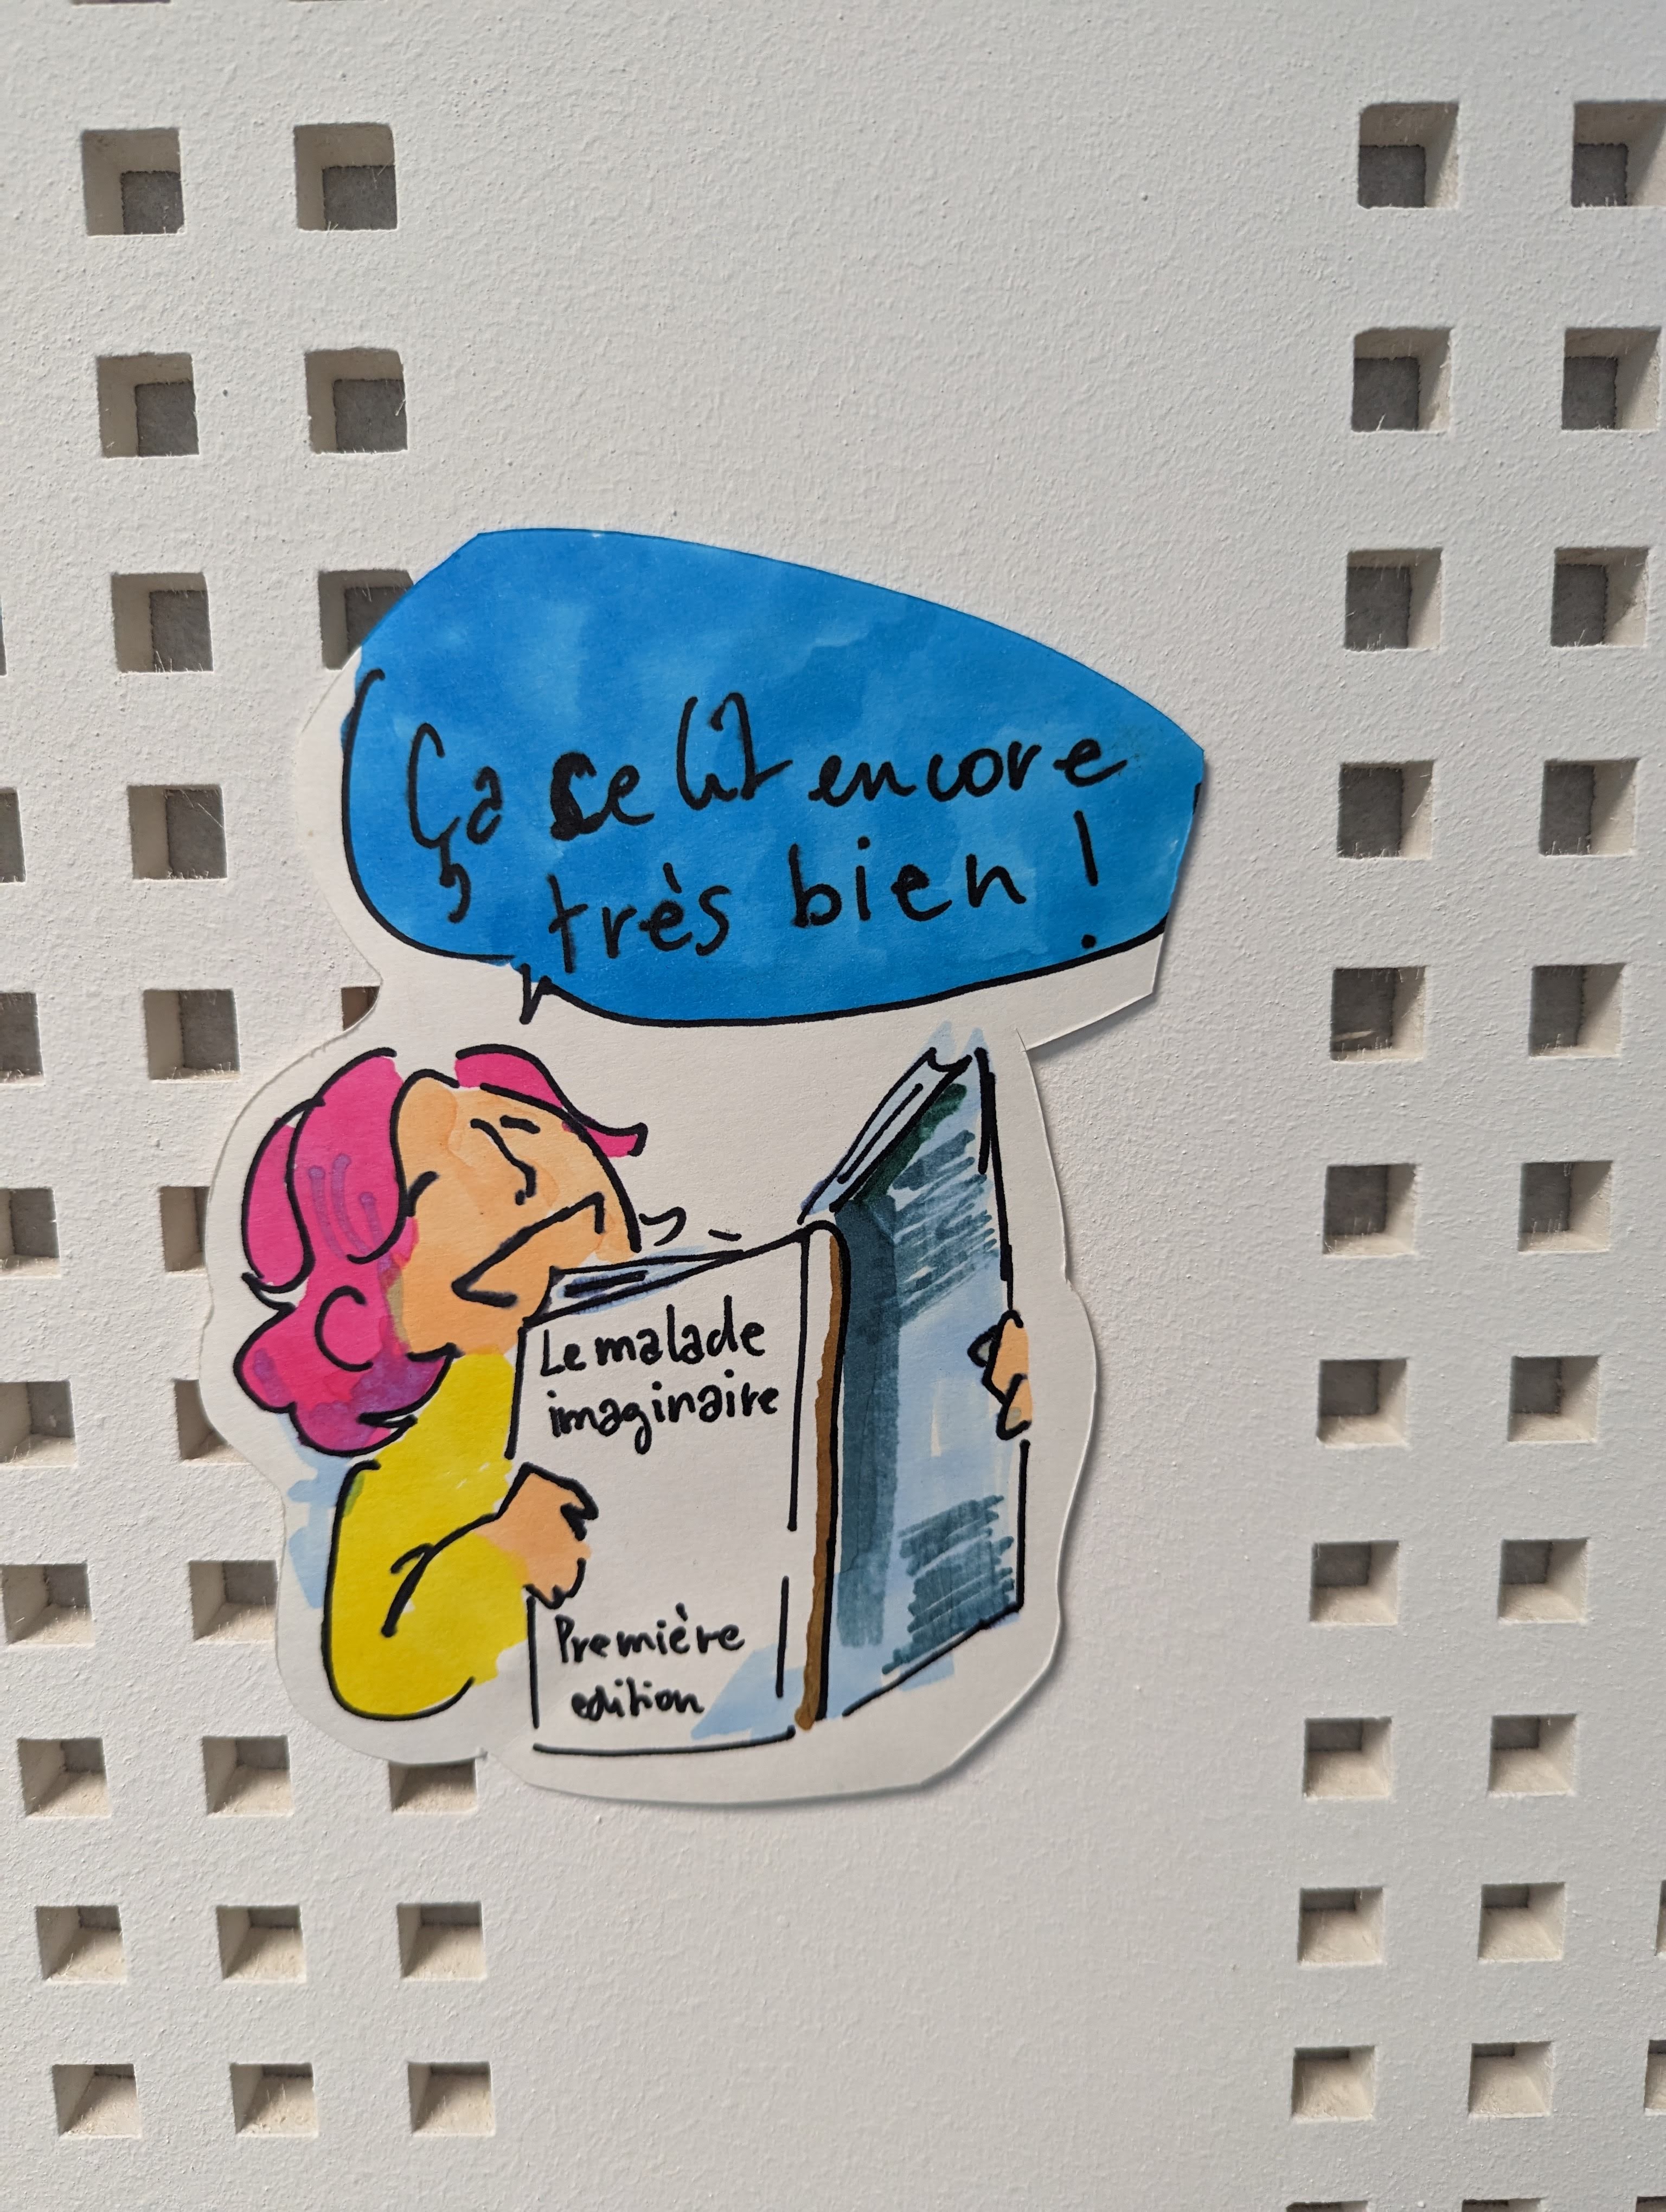 Ça se lit encore
très bien !
Le malade
imaginaire
Première
edition